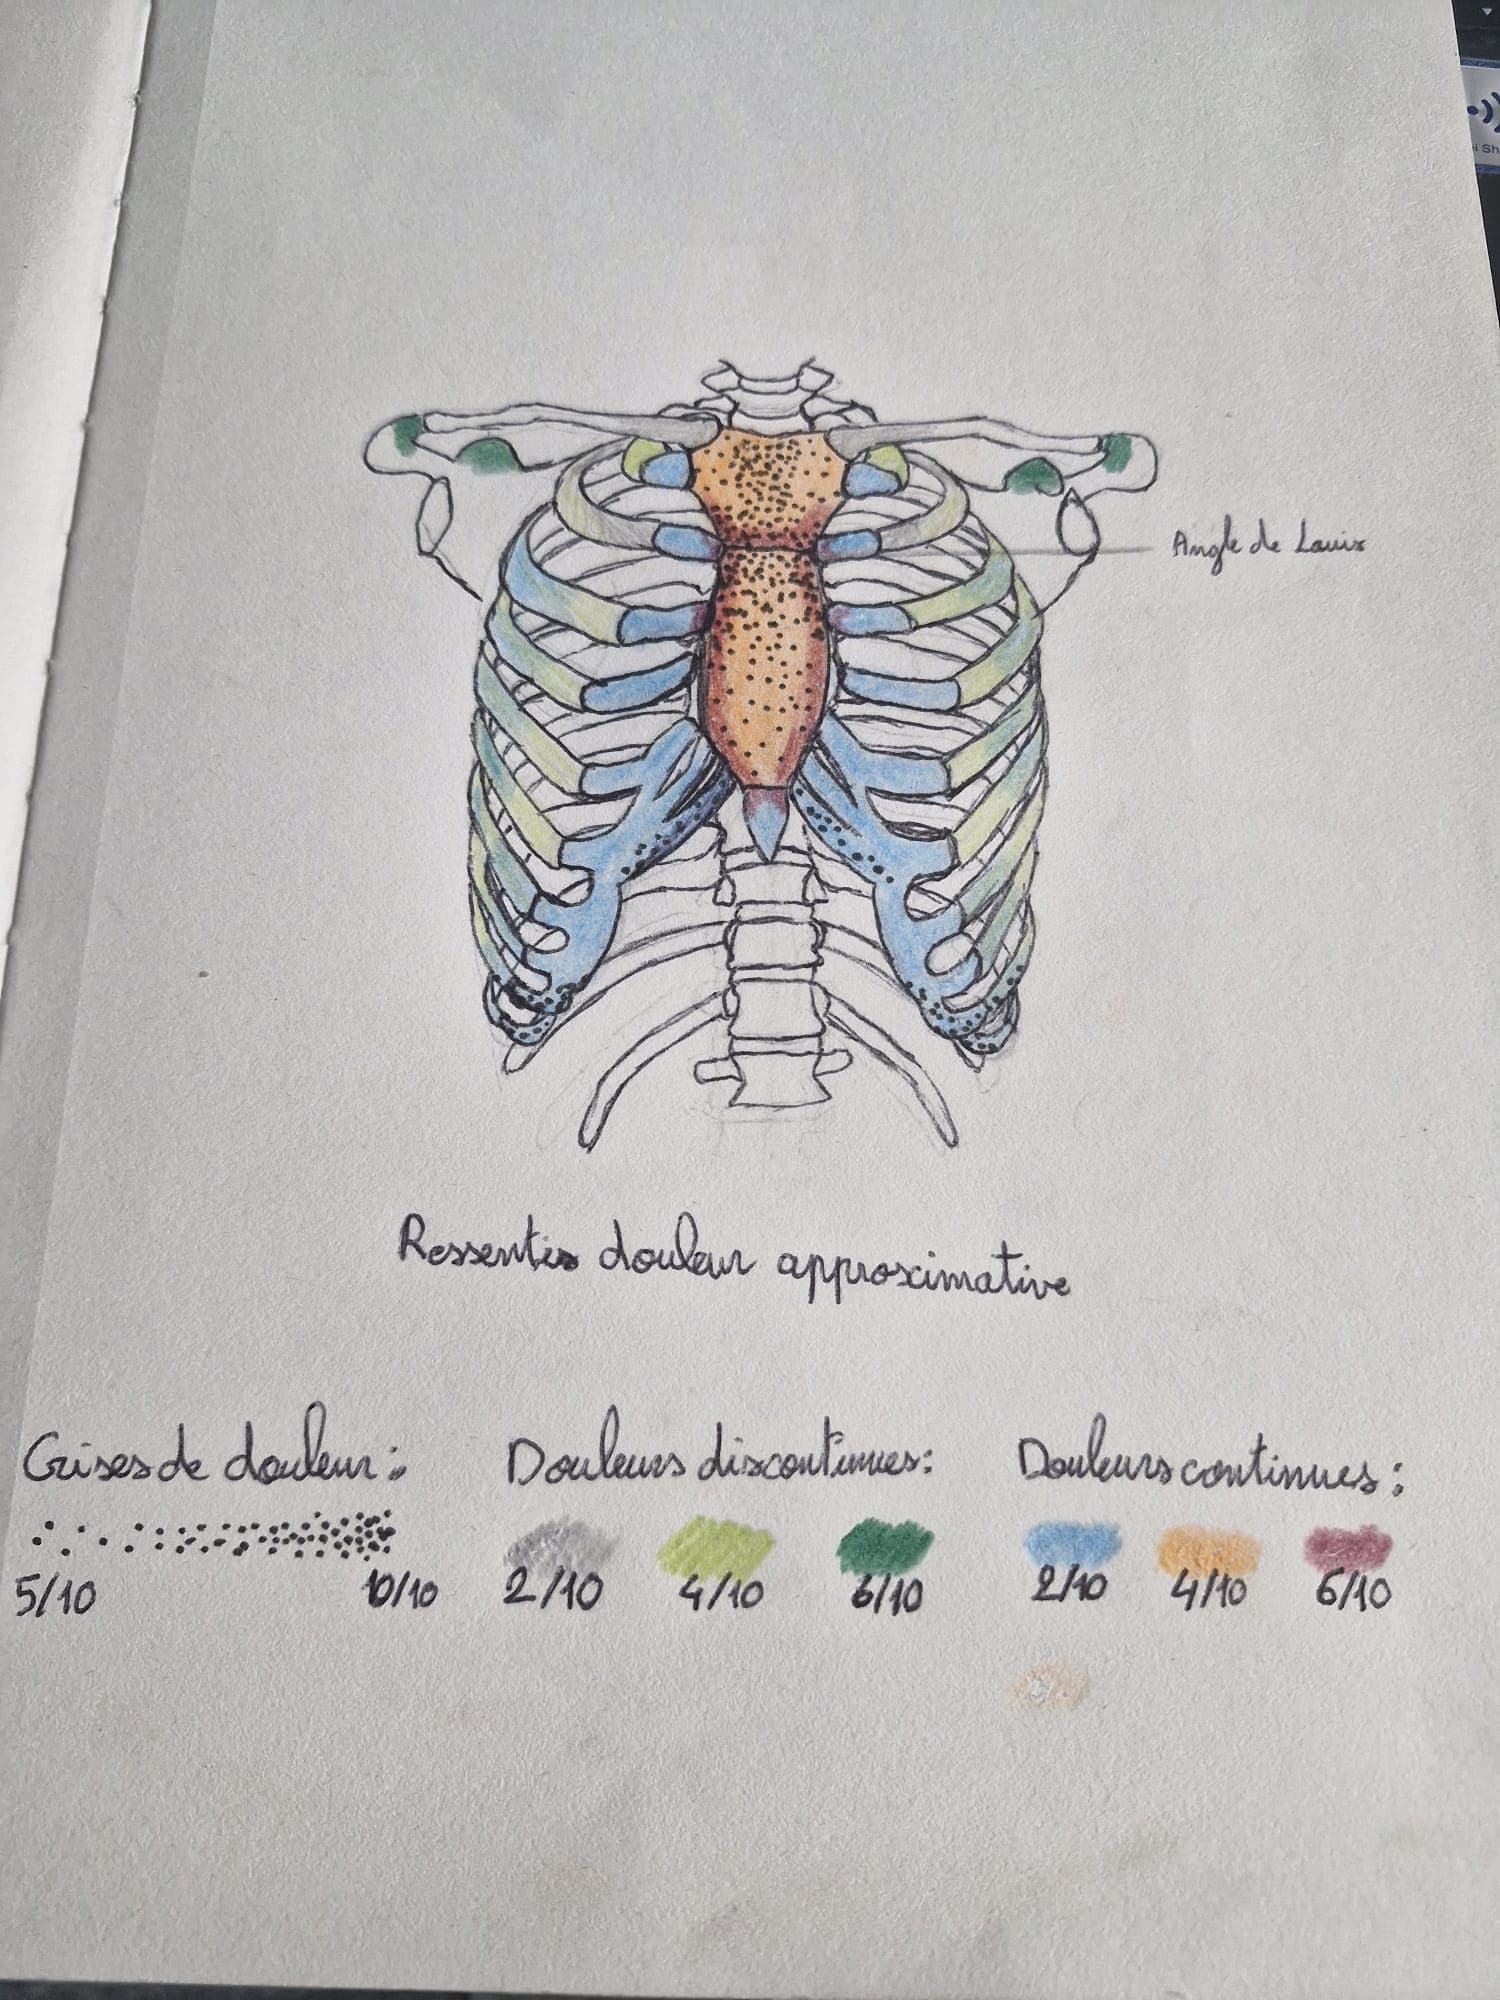 Angle de Louis
Ressentis douleur approximative
Crises de douleur :
5/10 10/10
Douleurs discontinues :
2/10 4/10 6/10
Douleurs continues :
2/10 4/10 6/10